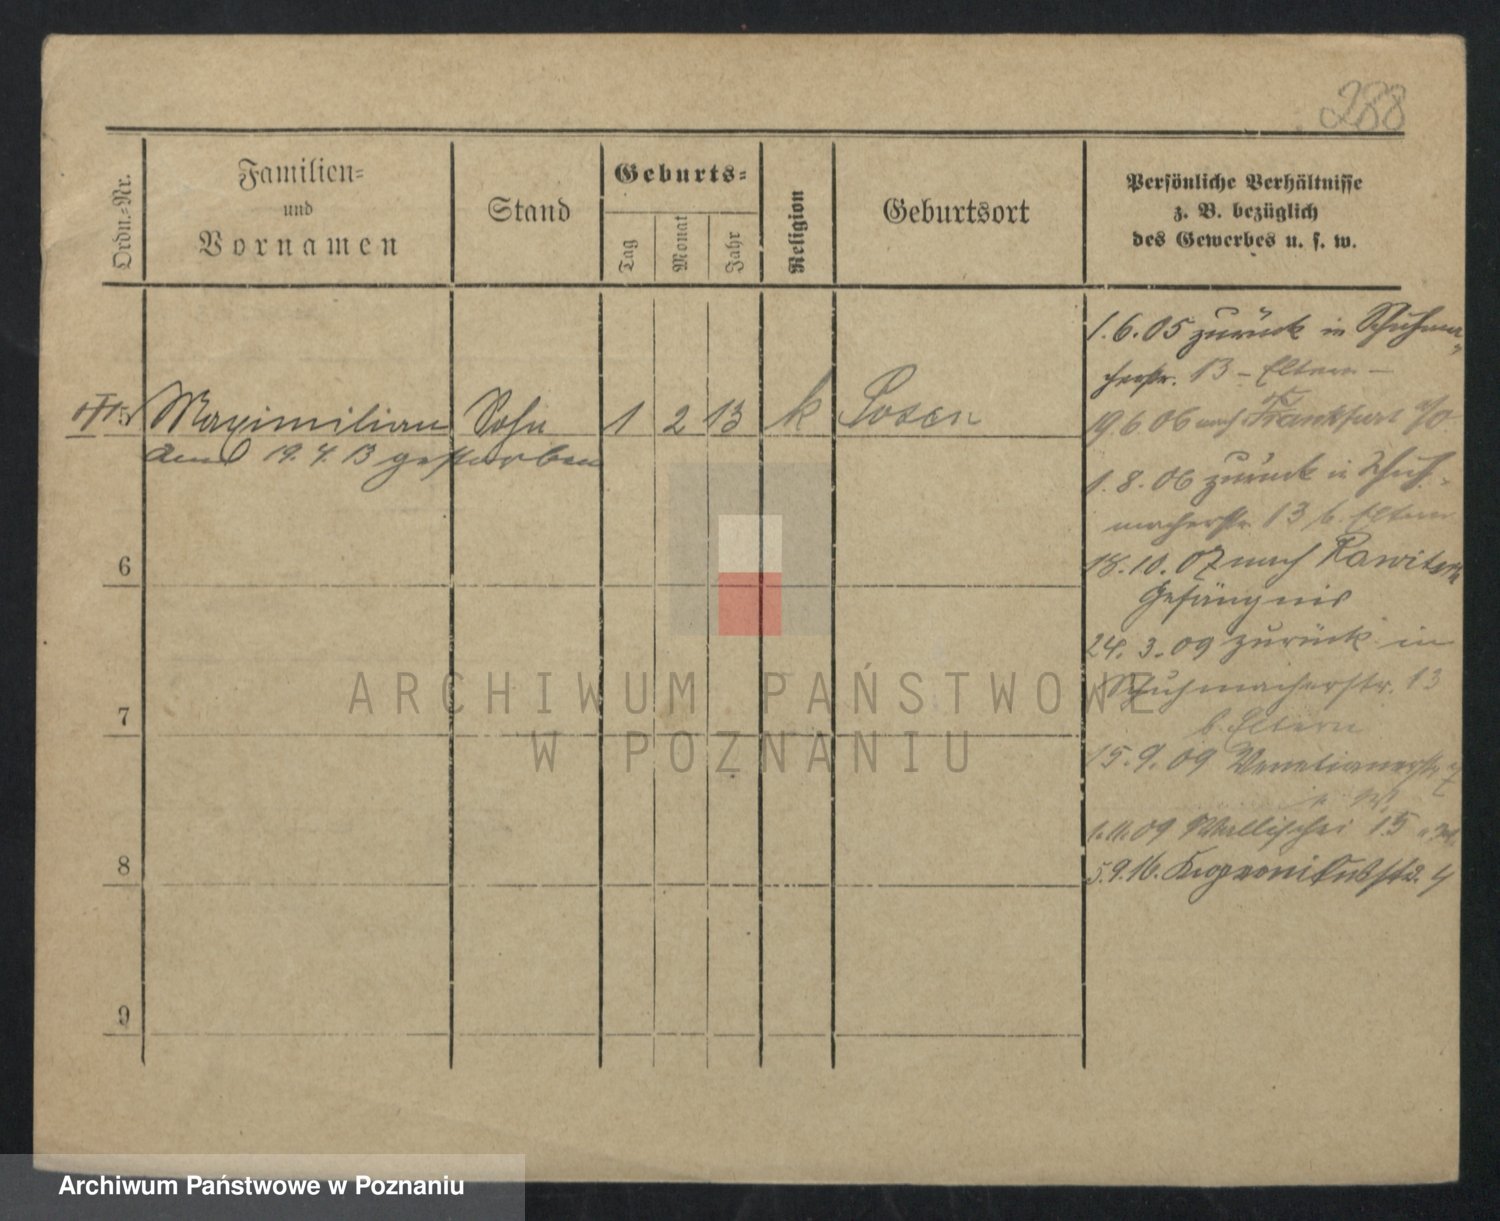 288
Ordn.-Nr.
Familien-
und
Vornamen
Stand
Geburts-
Tag
Monat
Jahr
Religion
Geburtsort
Persönliche Verhältnisse
z. B. bezüglich
des Gewerbes u. s. w.
5 Maximilian Sohn 1 2 13 k Posen
19. 4. 13 gestorben
6
7
8
9
1. 6. 05 zurück in Schuhma-
cherstr. 13 - Eltern -
19. 6 06 nach Frankfurt a/O
1. 8. 06 zurück in Schuh-
macherstr. 13 b. Eltern
18. 10. 07 nach Rawitsch
Gefängnis
24. 3. 09 zurück in
Schuhmacherstr. 13
b. Eltern
15. 9. 09 Venetianerstr. 7
1. 11. 09 Wallischei 15
5. 9. 16. Kopernikusstr. 4
ARCHIWUM PAŃSTWOWE
W POZNANIU
Archiwum Państwowe w Poznaniu